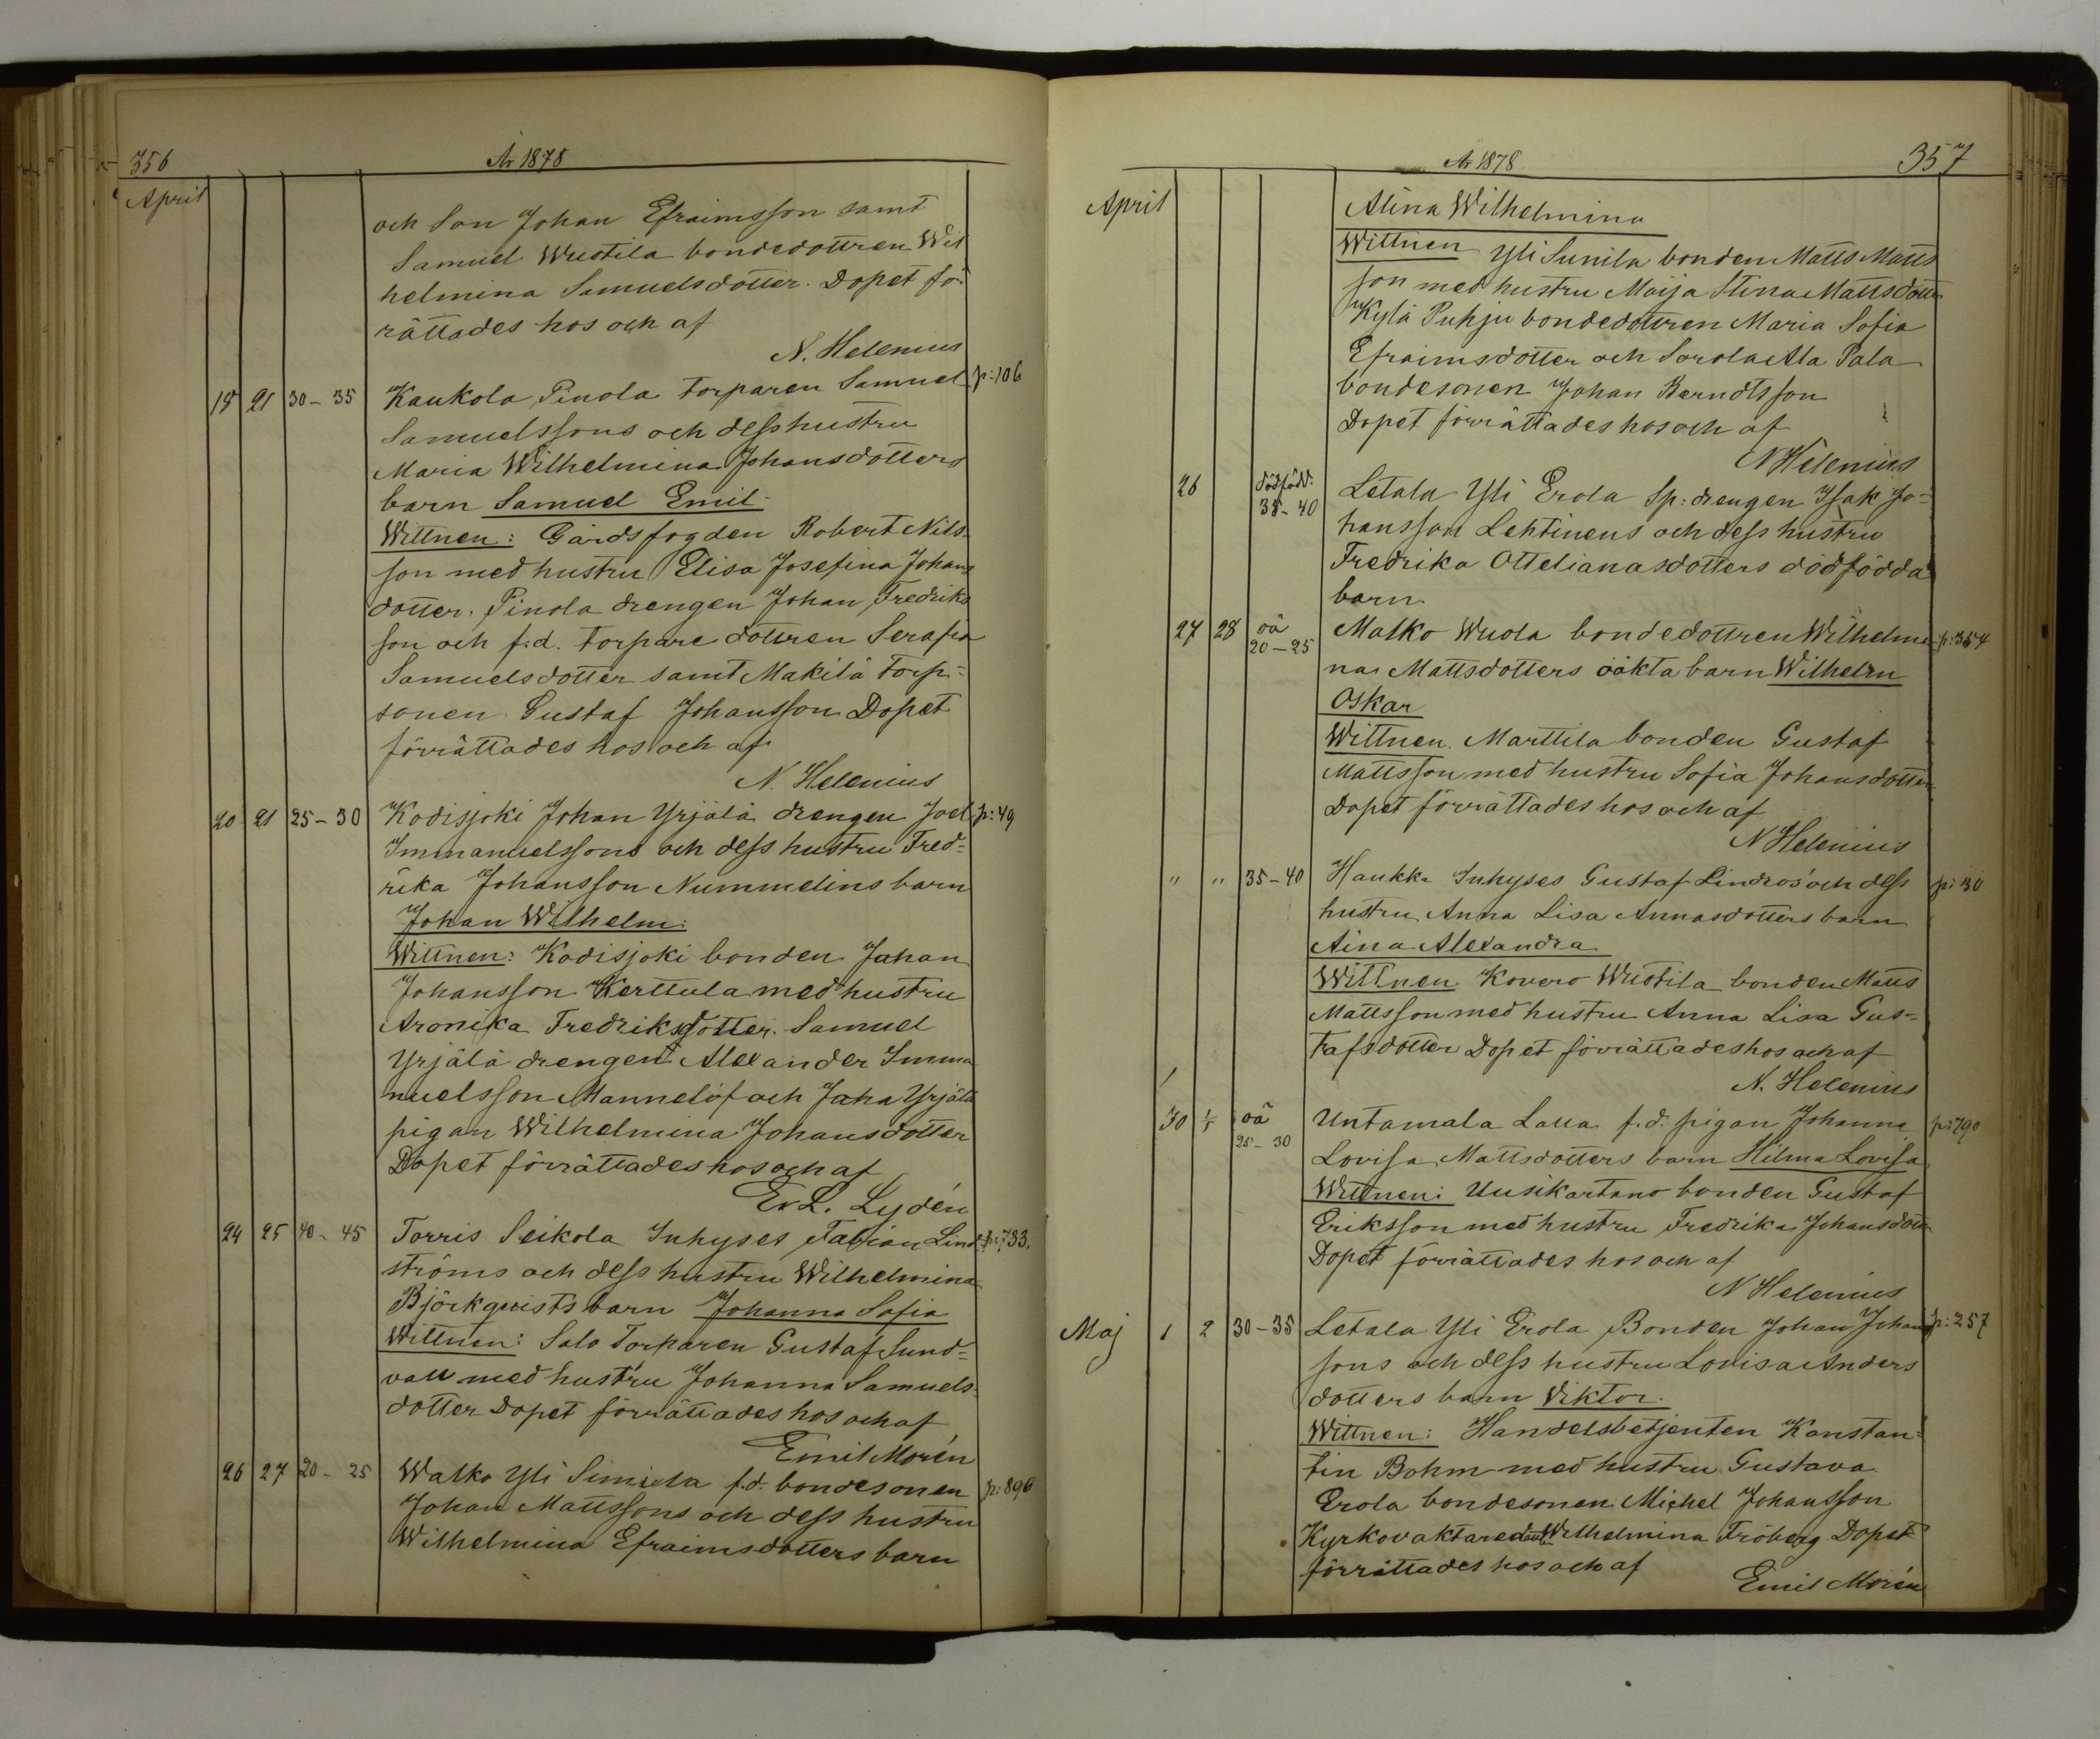 356
År 1878
April
och Son Johan Efraimsson samt
Samuel Wuotila bondedottren Wil
helmina Samuelsdotter. Dopet för
rättades hos och af
N. Helenius
18 21 30-35 Kaukola Pinola torparen Samuel p:106
Samuelssons och dess hustru
Maria Wilhelmina Johansdotters
barn Samuel Emil
Wittnen: Gårdsfogden Robert Nils-
son med hustru Elisa Josefina Johans
dotter. Pinola drengen Johan Fredriks
son och f.d. torpare dottren Serafia
Samuelsdotter samt Makilä torp-
sonen Gustaf Johansson Dopet
förrättades hos och af
N. Helenius
20 21 25-30 Kodisjoki Johan Yrjälä drengen Joel p:49
Immanuelssons och dess hustru Fred-
rika Johansson Nummelins barn
Johan Wilhelm.
Wittnen: Kodisjoki bonden Johan
Johansson Kerttula med hustru
Aronika Fredriksdotter. Samuel
Yrjälä drengen Alexander Imma
nuelsson Mannelöf och Jaha Yrjälä
pigan Wilhelmina Johansdotter
Dopet förrättades hos och af
Ev L. Lydén
24 25 40-45 Torris Seikola Inhyses Fabian Lind- p:733.
ströms och dess hustru Wilhelmina
Björkqwists barn Johanna Sofia
Wittnen: Salo Torparen Gustaf Sund-
vall med hustru Johanna Samuels-
dotter Dopet förrättades hos och af
Emil Morén
26 27 20-25 Walko Yli Sunila f.d. bondesonen p:896
Johan Mattssons och dess hustru
Wilhelmina Efraimsdotters barn
År 1878
357
April
Alina Wilhelmina
Wittnen Yli Sunila bonden Matts Matts
son med hustru Maija Stina Mattsdotter
Kylä Puhju bondedottren Maria Sofia
Efraimsdotter och Sorola Ala Pala
bondesonen Johan Berndtsson
Dopet förrättades hos och af
N Helenius
26 dödfödd: 35-40 Letala Yli Erola Sp: drengen Isak Jo-
hansson Lehtinens och dess hustru
Fredrika Ottelianasdotters dödfödda
barn.
27 28 oä 20-25 Malko Wuola bondedottren Wilhelmi- p:354
nas Mattsdotters oäkta barn Wilhelm
Oskar
Wittnen. Marttila bonden Gustaf
Mattsson med hustru Sofia Johansdotter
Dopet förrättades hos och af
N Helenius
" " 35-40 Haukka Inhyses Gustaf Lindros' och dess p: 30
hustru Anna Lisa Annasdotters barn
Aina Alexandra
Wittnen Kovero Wuotila bonden Matts
Mattsson med hustru Anna Lisa Gus-
tafsdotter Dopet förrättades hos och af
N. Helenius
30 1/5 oä 25-30 Untamala Lalla f.d. pigan Johanna p:790
Lovisa Mattsdotters barn Hilma Lovisa
Wittnen: Uusikartano bonden Gustaf
Eriksson med hustru Fredrika Johansdotter
Dopet förrättades hos och af
N Helenius
Maj 1 2 30-35 Letala Yli Erola Bonden Johan Johans p:257
sons och dess hustru Lovisa Anders
dotters barn Viktor.
Wittnen: Handelsbetjenten Konstan-
tin Bohm med hustru Gustava
Erola bondesonen Michel Johansson
Kyrkovaktaredott Wilhelmina Fröberg Dopet
förrättades hos och af
Emil Morén